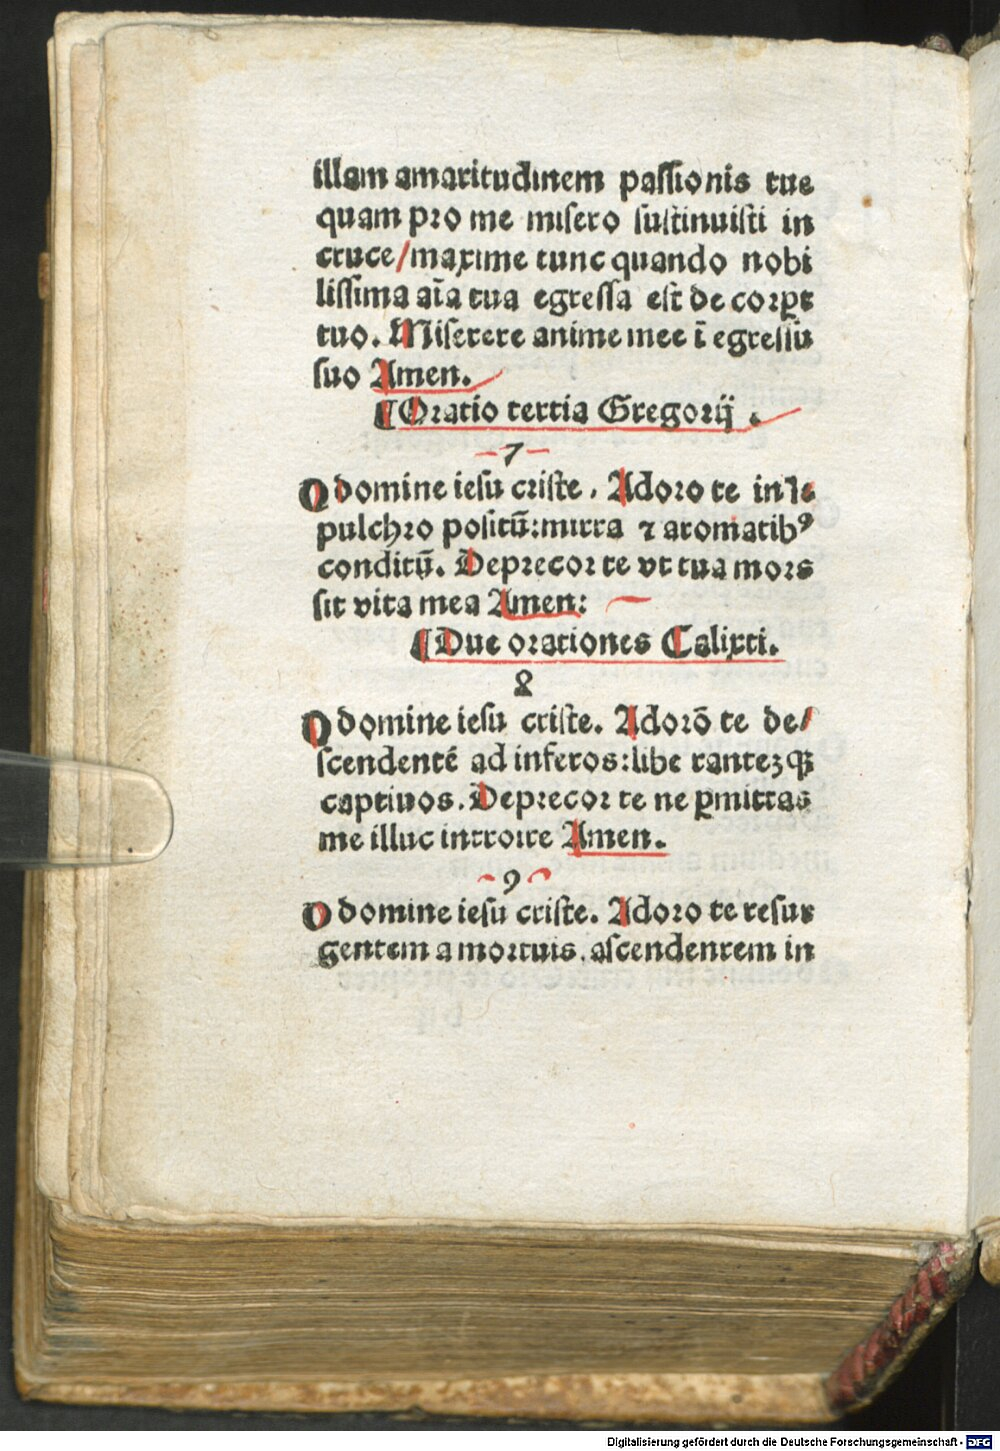 illam amaritudinem passionis tue
quam pro me misero sustinuisti in
cruce/maxime tunc quando nobi
lissima aīa tua egressa est de corpe
tuo. Miserere anime mee ī egressu
suo Amen.
¶Oratio tertia Gregorij.
7
O domine iesu criste. Adoro te in se
pulchro positū:mirra ⁊ aromatibꝰ
conditū. Deprecor te vt tua mors
sit vita mea Amen:
¶Due orationes Calixti.
8
O domine iesu criste. Adorō te de/
scendentē ad inferos:libe rantezꝙ
captiuos. Deprecor te ne ꝑmittas
me illuc introire Amen.
9
O domine iesu criste. Adoro te resur
gentem a mortuis. ascendentem in
Digitalisierung gefördert durch die Deutsche Forschungsgemeinschaft - DFG